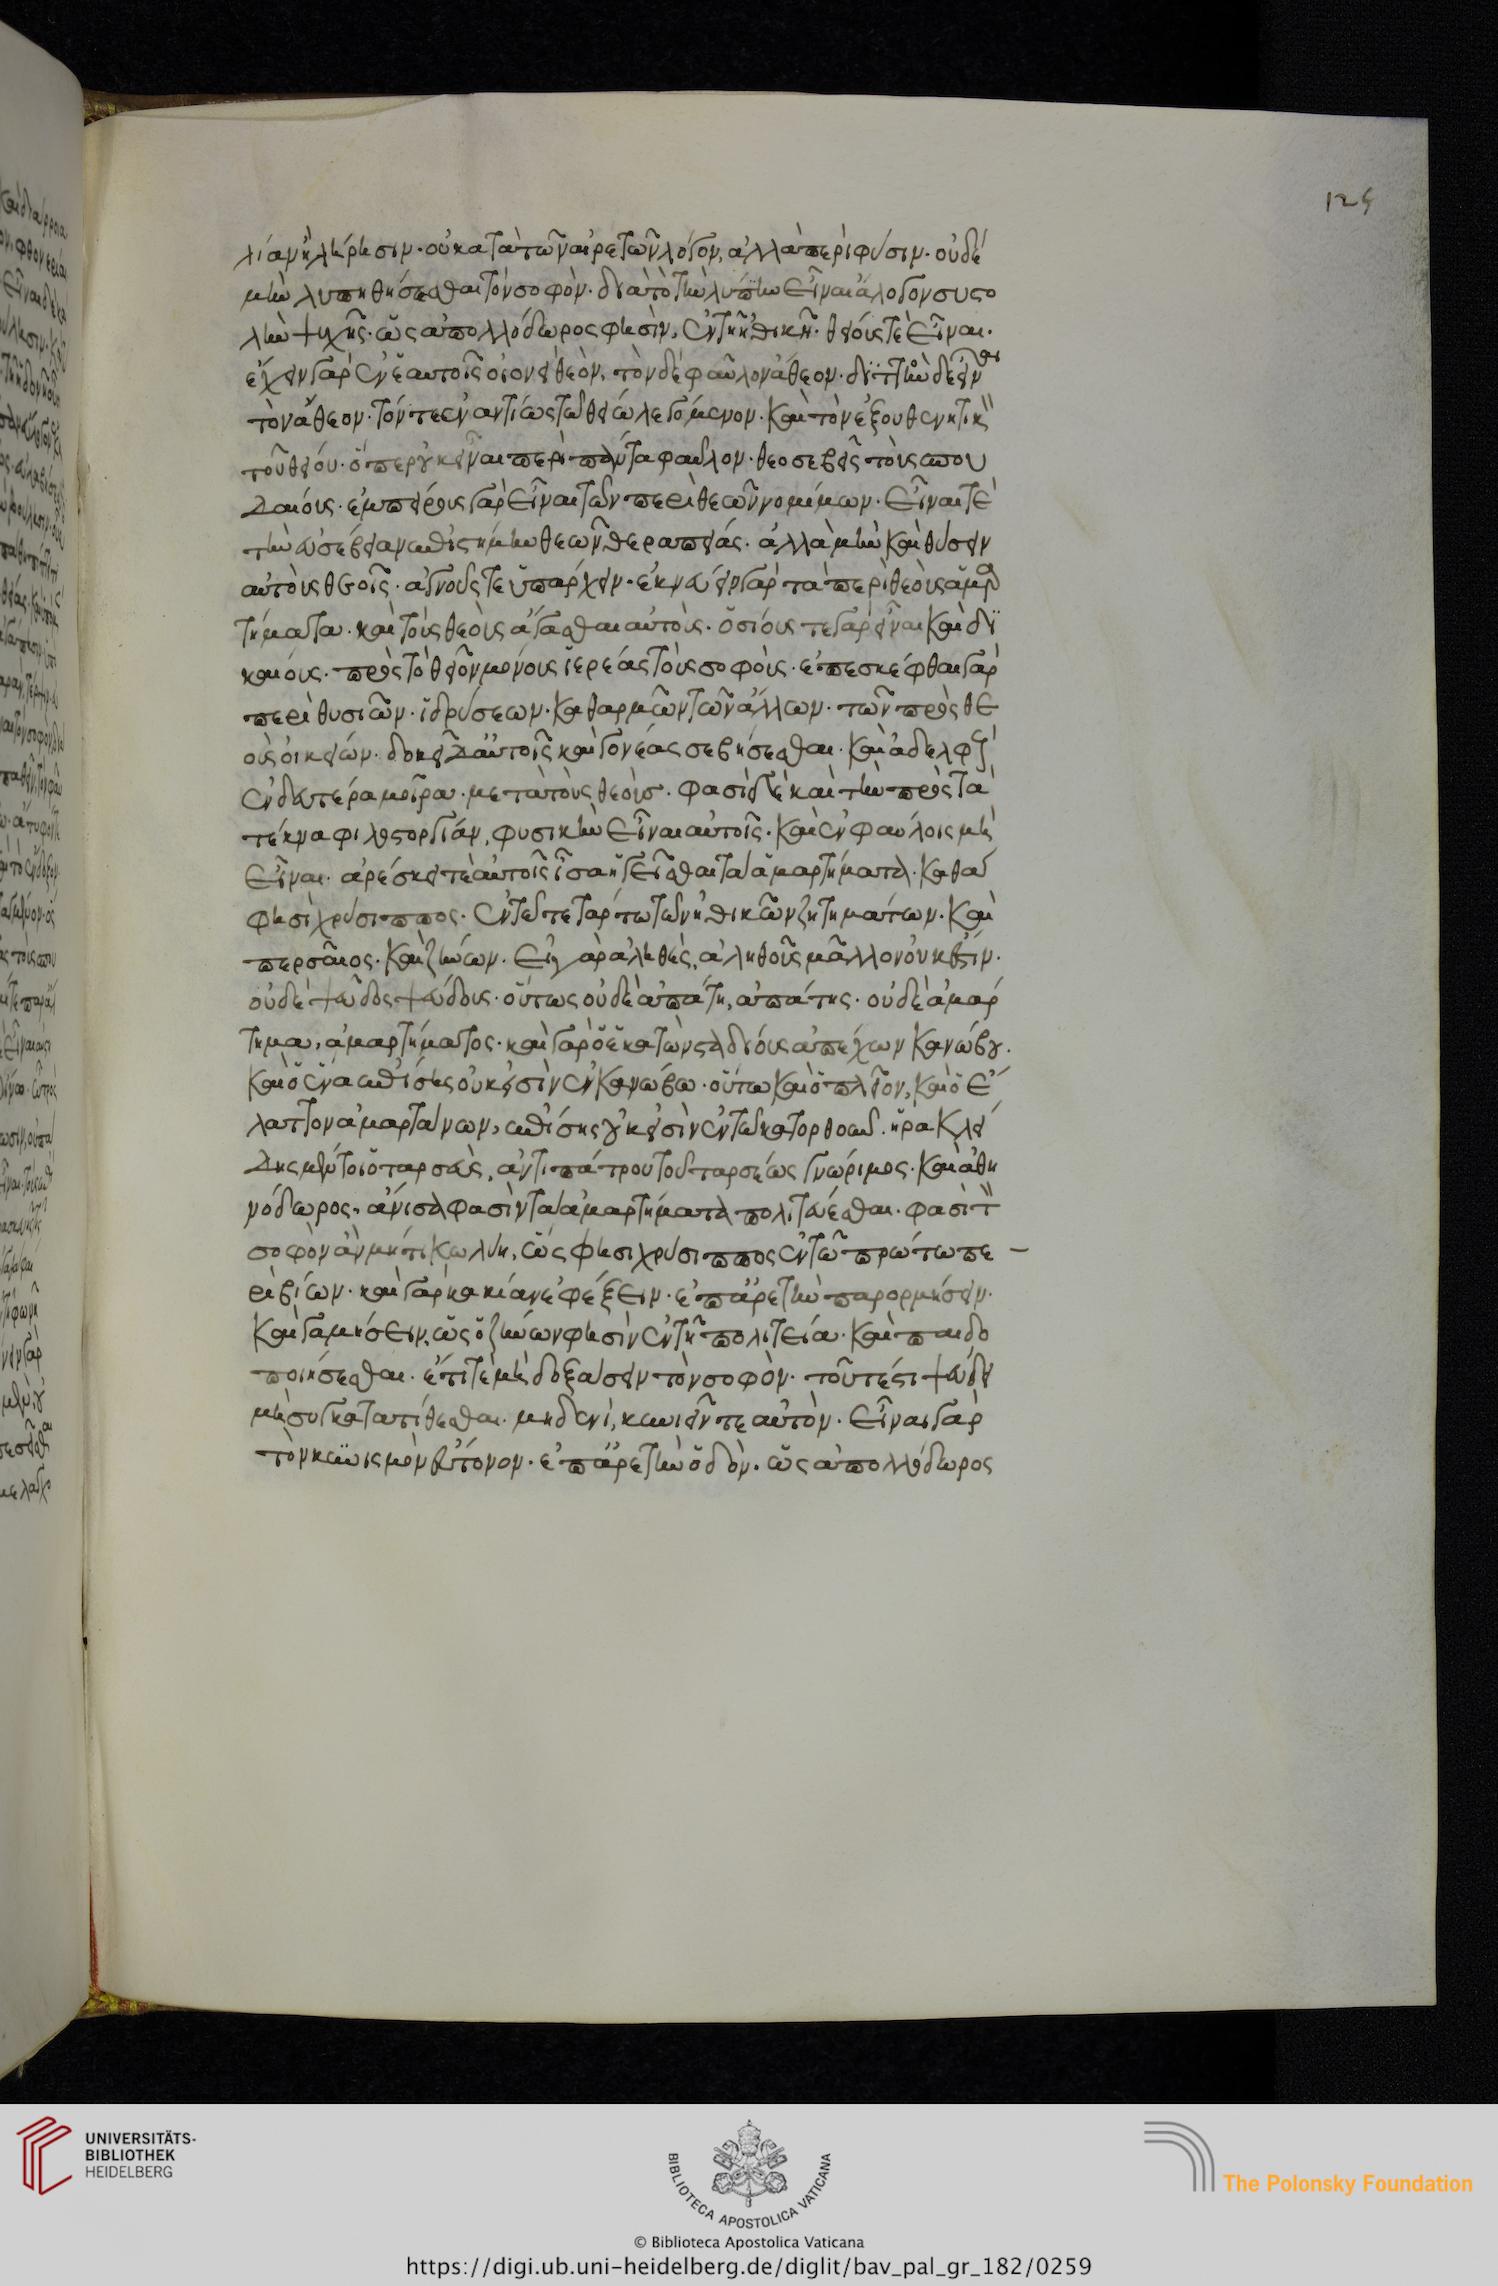 125
λίαν ἢ λήρησιν· οὐ κατὰ τῶν αἱρετῶν λόγον, ἀλλὰ περὶ φύσιν· οὐδὲ
μὴν λυπηθήσεσθαι τὸν σοφὸν· διὰ τὸ τὴν λύπην εἶναι ἄλογον συστο
λὴν ψυχῆς· ὥς ἀπολλόδωρος φησὶν, ἐν τῇ ἠθικῇ· θείους τὲ εἶναι·
ἔχειν γὰρ ἐν ἑαυτοῖς οἱονεὶ θεὸν, τὸν δὲ φαῦλον ἄθεον· διττὸν δὲ εἶναι
τὸν ἄθεον· τόν τε ἐναντίως τῷ θείῳ λεγόμενον· καὶ τὸν ἐξουθενητικὸν
τοῦ θείου· ὅπερ οὐκ εἶναι περὶ πάντα φαῦλον· θεοσεβεῖς τοὺς σπου
δαίους· ἐμπείρους γὰρ εἶναι τῶν περὶ θεῶν νομίμων· εἶναι τὲ
τὴν εὐσέβειαν ἐπιστήμην θεῶν θεραπείας· ἀλλὰ μὴν καὶ θύσειν
αὐτοὺς θεοῖς· ἁγνούς τε ὑπάρχειν· ἐκνεύειν γὰρ τὰ περὶ θεοὺς ἁμαρ
τήματα· καὶ τοὺς θεοὺς ἄγασθαι αὐτοὺς· ὁσίους τε γὰρ εἶναι καὶ δι
καίους· πρὸς τὸ θεῖον μόνους ἱερέας τοὺς σοφοὺς· ἐπεσκέφθαι γὰρ
περὶ θυσιῶν· ἱδρύσεων· καθαρμῶν τῶν ἄλλων· τῶν πρὸς θε
οὺς οἰκείων· δοκεῖ δ' αὐτοῖς καὶ γονέας σεβήσεσθαι· καὶ ἀδελφοὺς
ἐν δευτέρα μοῖρα· μετὰ τοὺς θεοὺς· φασὶ δὲ καὶ τὴν πρὸς τὰ
τέκνα φιλοστοργίαν, φυσικὴν εἶναι αὐτοῖς· καὶ ἐν φαύλοις μὴ
εἶναι· ἀρέσκει τὲ αὐτοῖς ἶσα ἡγεῖσθαι τὰ ἁμαρτήματα· καθὰ
φησὶ χρύσιππος· ἐν τῷ τετάρτω τῶν ἠθικῶν ζητημάτων· καὶ
περσαῖος· καὶ ζήνων· εἰ γὰρ ἀληθὲς, ἀληθοῦς μᾶλλον οὐκ ἔστιν·
οὐδὲ ψεῦδος ψεύδους· οὕτως οὐδὲ ἀπάτη, ἀπάτης· οὐδὲ ἁμάρ
τημα, ἁμαρτήματος· καὶ γὰρ ὁ ἑκατὸν σταδίους ἀπέχων κανώβου·
καὶ ὁ ἕνα ἐπίσης οὐκ εἰσὶν ἐν κανώβω· οὕτω καὶ ὁ πλεῖον, καὶ ὁ ἔ
λαττον ἁμαρτάνων, ἐπίσης οὐκ εἰσὶν ἐν τῶ κατορθοῦν· ἡρακλεί
δης μέντοι ὁ ταρσεὺς, ἀντιπάτρου τοῦ ταρσέως γνώριμος· καὶ ἀθη
νόδωρος, ἄνισα φασὶν τὰ ἁμαρτήματα πολιτεύεσθαι· φασὶ τὸν
σοφὸν ἂν μή τι κωλύη, ὥς φησι χρύσιππος ἐν τῶ πρώτω πε
ρὶ βίων· καὶ γὰρ κακίαν ἐφέξειν· ἐπ' ἀρετὴν παρορμήσειν·
καὶ γαμήσειν, ὥς ὁ ζήνων φησὶν ἐν τῇ πολιτεία· καὶ παιδο
ποιήσεσθαι· ἔτι τὲ μὴ δοξάσειν τὸν σοφὸν· τοῦτέστι ψεύδει
μὴ συγκατατίθεσθαι μηδενὶ, κυνιεῖν τε αὐτὸν· εἶναι γὰρ
τὸν κυνισμὸν σύντονον· ἐπ' ἀρετὴν ὁδὸν· ὥς ἀπολλόδωρος
UNIVERSITÄTS-
BIBLIOTHEK
HEIDELBERG
BIBLIOTECA APOSTOLICA VATICANA
© Biblioteca Apostolica Vaticana
The Polonsky Foundation
https://digi.ub.uni-heidelberg.de/diglit/bav_pal_gr_182/0259